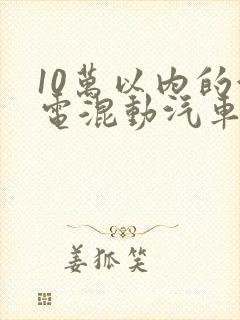 10萬以内的
電混動汽車
姜狐笑